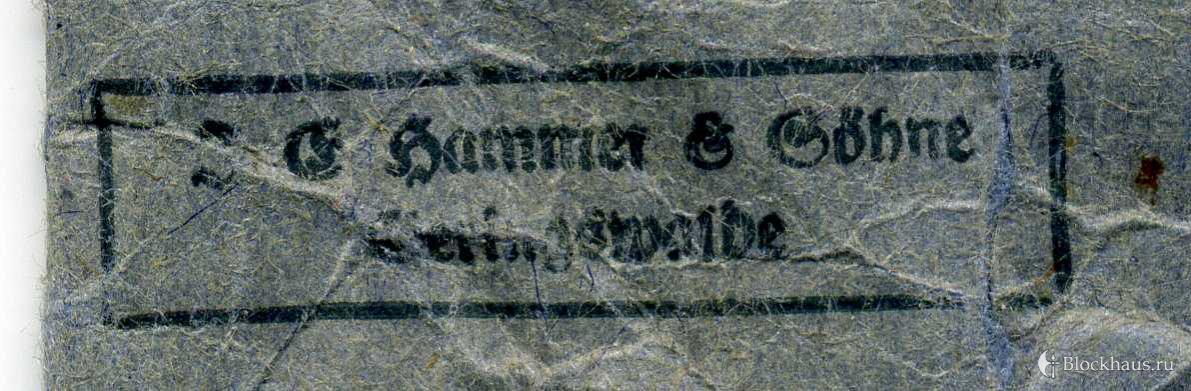 J. C. Hammer & Söhne
Geringswalde
Blockhaus.ru